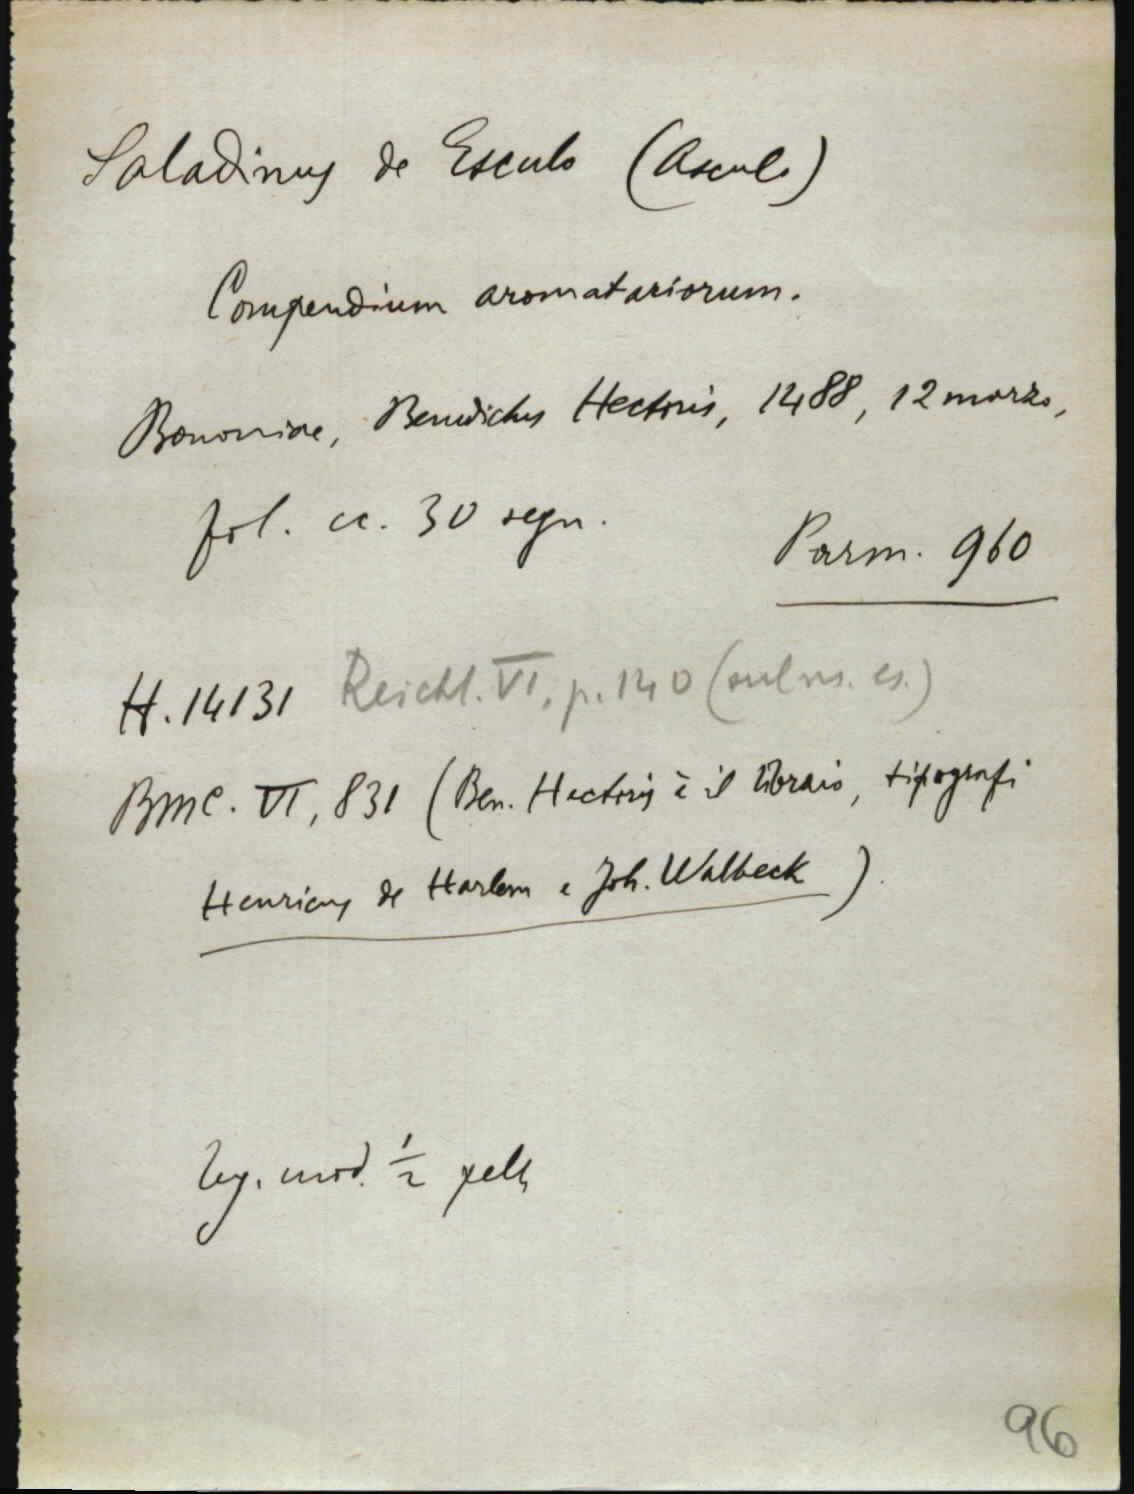 Saladinus de Esculo (Asculo)
Compendium aromatariorum.
Bononiae, Benedictus Hectoris, 1488, 12 marzo,
fol. cc. 30 segn.
Parm. 960
H. 14131 Reichl. VI, p. 140 (sul ns. es.)
BMC. VI, 831 (Ben. Hectoris è il libraio, tipografi
Henricus de Harlem e Joh. Walbeck).
Leg. mod. ½ pelle
96